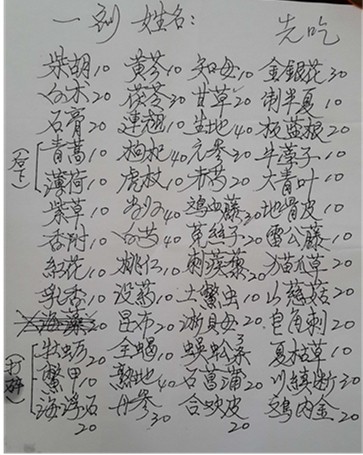 一剂 姓名: 先吃
柴胡10 黄芩10 知母10 金銀花30
白术20 茯苓30 甘草20 制半夏10
石膏20 連翘10 生地40 板蓝根20
(后下) 青蒿10 枸杞40 元参20 牛蒡子10
薄荷10 虎杖10 赤芍20 大青叶10
紫草10 当归40 鸡血藤30 地骨皮10
香附10 白芍40 菟絲子20 雷公藤10
紅花10 桃仁10 刺蒺藜20 猫爪草20
乳香10 没药10 土鱉虫10 山慈菇20
昆布20 浙貝母20 皂角刺20
(打碎) 牡蛎20 全蝎10 蜈蚣3条 夏枯草10
鱉甲10 熟地40 石菖蒲20 川續断30
海浮石20 丹参30 合欢皮20 鸡内金20